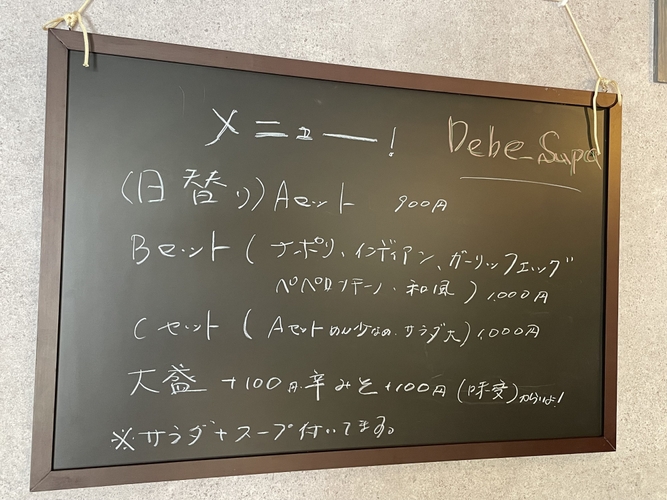 メニュー! Debe_Supa
(日替り)Aセット 900円
Bセット(ナポリ、インディアン、ガーリックエッグ
ペペロンチーノ、和風)1,000円
Cセット(Aセットめん少なめ、サラダ大)1,000円
大盛 +100円、辛みそ+100円(味変)からいよ!
※サラダ+スープ付いてます。